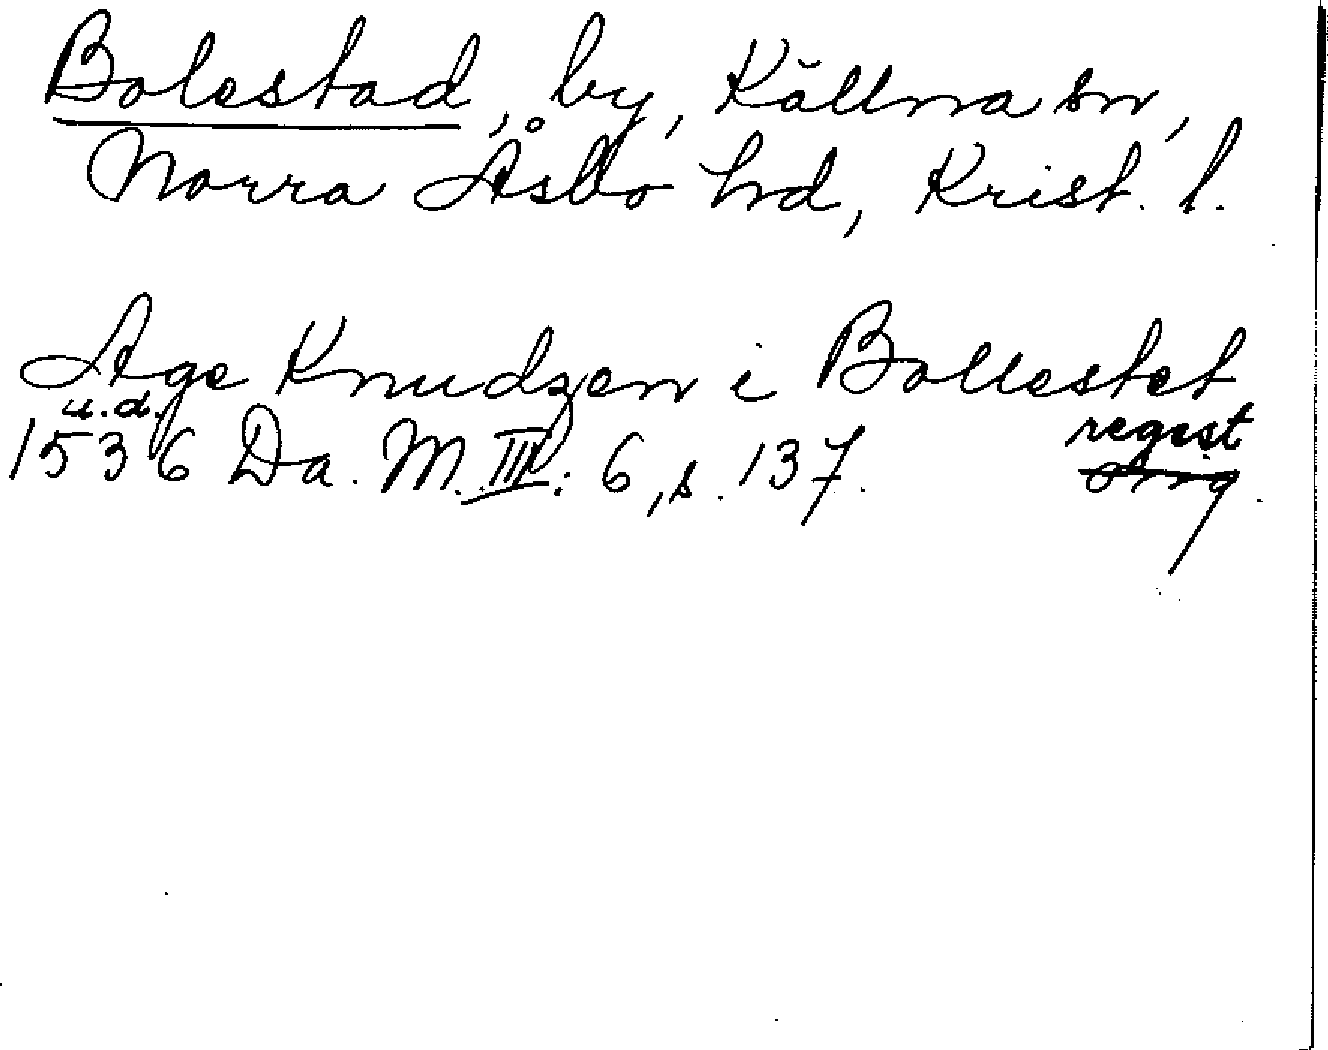 Bolestad, by, Källna sn,
Norra Åsbo hd, Krist. l.
Age Knudzen i Bollestet
u.d.
1536 Da. M. III: 6, s. 137. regest